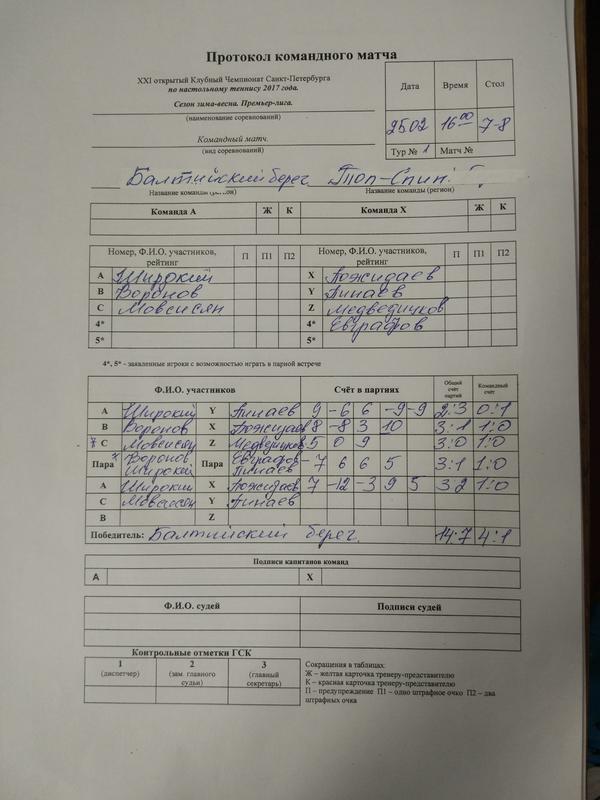 Протокол командного матча
XXI открытый Клубный Чемпионат Санкт-Петербурга
по настольному теннису 2017 года.
Сезон зима-весна. Премьер-лига.
(наименование соревнований)
Командный матч.
(вид соревнований)
Дата Время Стол
25.02 16 00 7-8
Тур № 1 Матч №
Балтийский берег Топ-Спин
Название команды (регион) Название команды (регион)
Команда А Ж К Команда Х Ж К
Номер, Ф.И.О. участников, рейтинг П П1 П2 Номер, Ф.И.О. участников, рейтинг П П1 П2
А Широкий Х Пожидаев
В Воронов Y Пинаев
С Мовсисян Z Медведчиков
4* 4* Евграфов
5* 5*
4*, 5* - заявленные игроки с возможностью играть в парной встрече
Ф.И.О. участников Счёт в партиях Общий счёт партий Командный счёт
А Широкий Y Пинаев 9 -6 6 -9 -9 2:3 0:1
В Воронов Х Пожидаев 8 -8 3 10 3:1 1:0
С Мовсисян Z Медведчиков 5 0 9 3:0 1:0
Пара Воронов Широкий Пара Евграфов Пинаев -7 6 6 5 3:1 1:0
А Широкий Х Пожидаев 7 -12 -3 9 5 3 2 1:0
С Мовсисян Y Пинаев
В Z
Победитель: Балтийский берег. 14:7 4:1
Подписи капитанов команд
А Х
Ф.И.О. судей Подписи судей
Контрольные отметки ГСК
1 2 3
(диспетчер) (зам. главного судьи) (главный секретарь)
Сокращения в таблицах:
Ж – желтая карточка тренеру-представителю
К – красная карточка тренеру-представителю
П – предупреждение П1 – одно штрафное очко П2 – два
штрафных очка